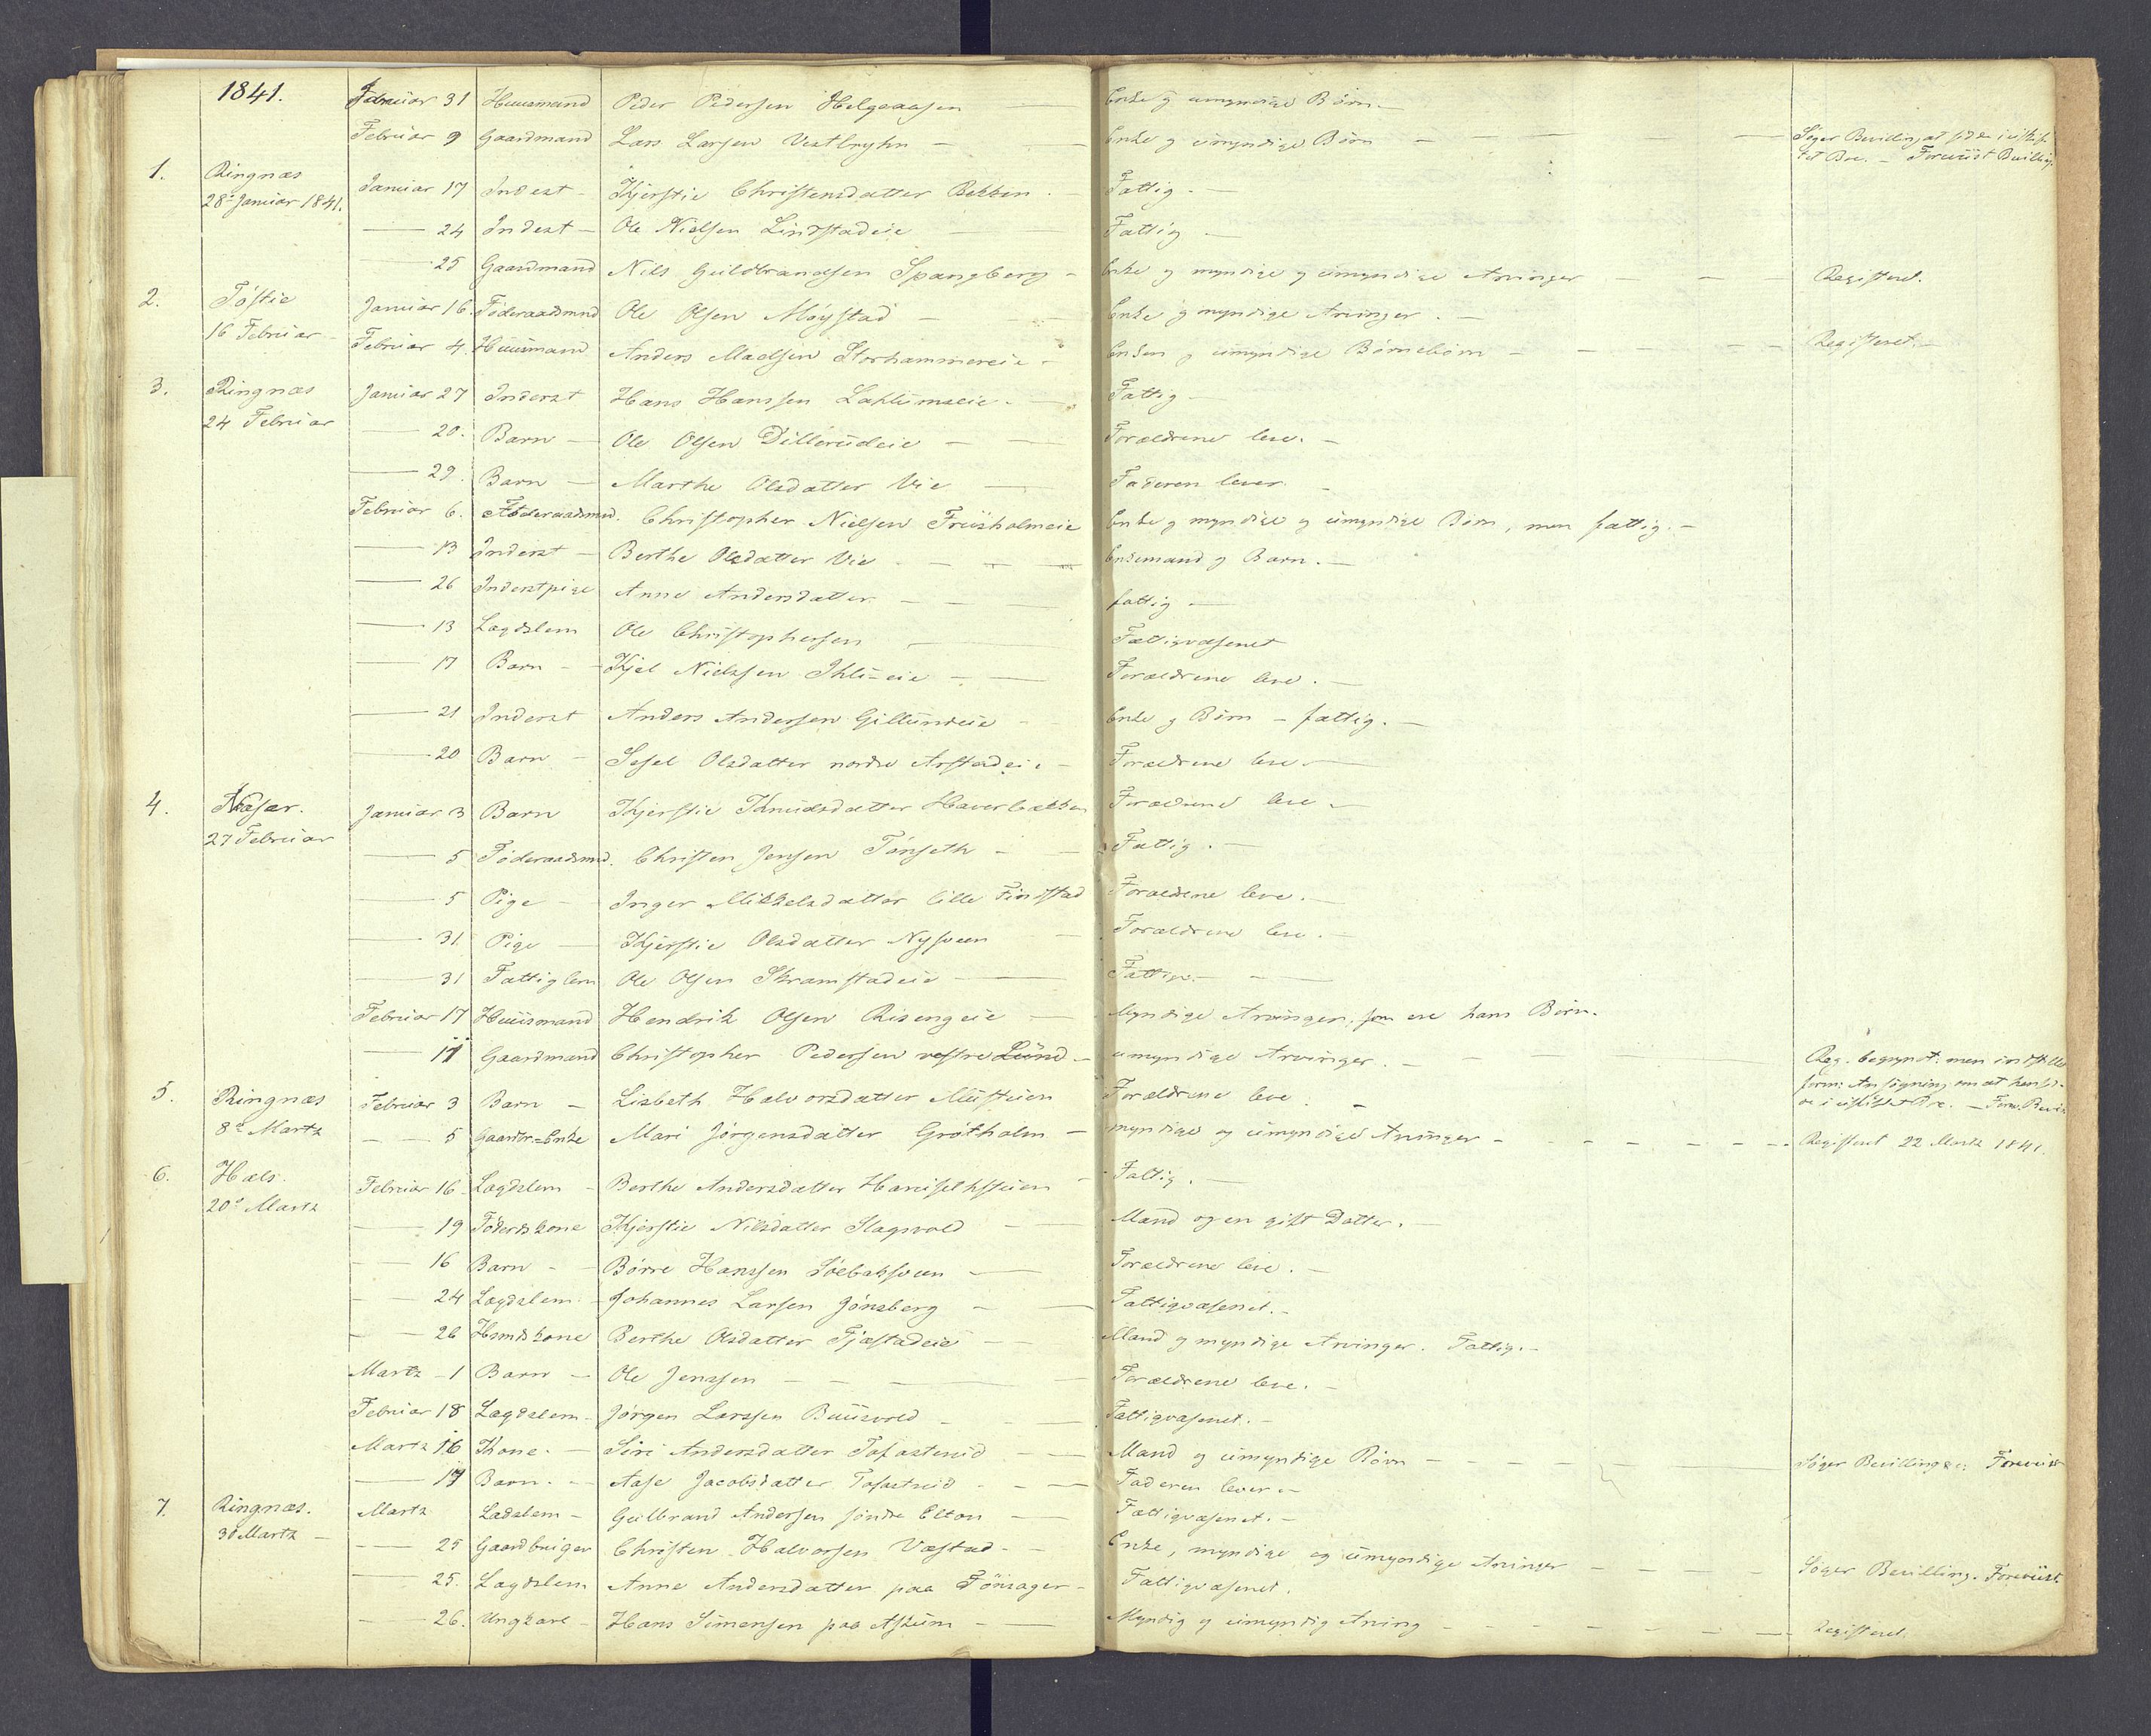 1841. Januar 31 Huusmand Peder Pedersen Helgeaasen — Enke og umyndige Børn. —
Februar 9 Gaardmand Lars Larsen Vestbryhn — Enke og umyndige Børn — Søger Bevilling at sidde i uskif-
tet Boe. — Foreviist Bevilling.
1. Ringnæs Januar 17 Inderst — Kjerstie Christensdatter Bekken — Fattig. —
28de Januar 1841. — 24 Inderst — Ole Nielsen Lindstadeie — Fattig —
— 25 Gaardmand Nils Guldbrandsen Spangberg — Enke og myndige og umyndige Arvinger — Registeret.
2. Tøftie Januar 16. Føderaadsmnd Ole Olsen Møystad — Enke og myndige Arvinger. —
16 Februar — Februar 4. Huusmand Anders Madsen Storhammereie — Enken og umyndige Børnebørn — Registeret. —
3. Ringnæs Januar 27 Inderst Hans Hanssen Laklumseie. — Fattig —
24 Februar — 20. Barn — Ole Olsen Dillerudeie — Forældrene leve. —
— 29. Barn — Marthe Olsdatter Vie — Faderen lever. —
Februar 6. Føderaadsmnd. Christopher Nielsen Friisholmeie Enke og myndige og umyndige Børn, men fattig. —
— 13 Inderst — Berthe Olsdatter Vie — Enkemand og Barn. —
— 26 Inderstpige Anne Andersdatter — fattig —
— 13 Lægdslem Ole Christophersen — Fattigvæsenet
— 17 Barn — Kjel Nielssen Ihli-eie — Forældrene leve. —
— 21 Inderst Anders Andersen Gillundeie — Enke og Børn — fattig. —
— 20 Barn — Sesel Olsdatter nordre Arstadeie — Forældrene leve —
4. Næsser. Januar 3 Barn Kjerstie Knudsdatter Haverbækken Forældrene leve —
27 Februar — 5 Føderaadsmnd. Christen Jensen Tønseth — Fattig. —
— 5 Pige — Inger Mikkelsdatter lille Finstad Forældrene leve. —
— 31. Pige — Kjerstie Olsdatter Nysveen — Forældrene leve. —
— 31 Fattiglem Ole Olsen Skramstadeie — Fattige. —
Februar 17 Huusmand Hendrik Olsen Risengeie — Myndige Arvinger, som ere hans Børn.
— 11 Gaardmand Christopher Pedersen vestre Lund — umyndige Arvinger. — Reg. begyndt. men indstillet
form: Ansøgning om at hensid-
de i uskiftet Boe. —
5. Ringnæs Februar 3 Barn — Lisbeth Halvorsdatter Mustuen Forældrene leve. —
8de Martz — 5 Gaardm=Enke Mari Jørgensdatter Grøtholm — myndige og umyndige Arvinger — Registeret 22 Martz 1841.
6. Hæls. Februar 16 — Lægdslem — Berthe Andersdatter — Fattig. —
20de Martz — 19 Føderdskone Kjerstie Nilsdatter Slagsvold — Mand og en gift Datter. —
— 16 Barn — Børre Hanssen Søebaksveen — Forældrene leve. —
— 24 Lægdslem — Johannes Larsen Jønsberg — Fattigvæsenet. —
— 26 Hsmdskone Berthe Olsdatter Tjæstadeie — Mand og myndige Arvinger. Fattig. —
Martz — 1 Barn — Ole Jenssen — Forældrene leve. —
Februar 18 Lægdslem — Jørgen Larssen Buusvold — Fattigvæsenet. —
Martz 16 Kone. — Siri Andersdatter Tofasterud — Mand og umyndige Børn — Søger Bevilling Foreviist
— 17 Barn. — Aase Jacobsdatter Tofastrud — Faderen lever —
7. Ringnæs. Martz Lædslem — Gulbrand Andersen søndre Elton — Fattigvæsenet. —
30 Martz — — 25 Gaardbruiger Christen Halvorsen Væstad — Enke, myndige og umyndige Arvinger — Søger Bevilling. Foreviist.
— 25. Lægdslem Anne Andersdatter paa Fonsager — Fattigvæsenet.
— 26. Ungkarl — Hans Simensen paa Askum — Myndig og umyndig Arving — Registeret.